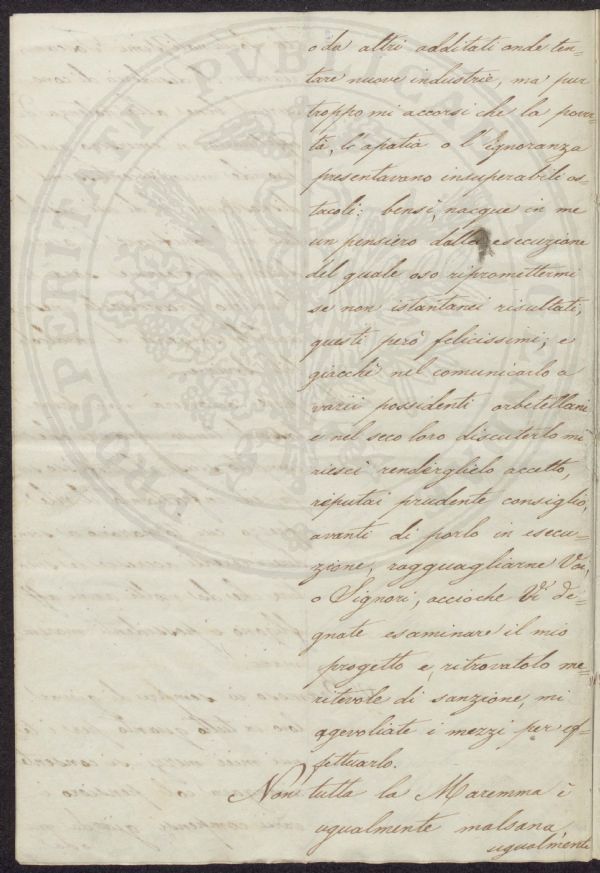 o da altri additati onde ten=
tare nuove industrie, ma pur
troppo mi accorsi che la pover=
tà, le apatia o l'Ignoranza
presentavano insuperabile os=
tacoli; bensì, nacque in me
un pensiero dalla esecuzione
del quale oso ripromettermi
se non istantanei risultati,
questi però felicissimi; e
giacchè nel comunicarlo a
varii possidenti orbetellani
e nel seco loro discuterlo mi
riescì renderglielo accetto,
reputai prudente consiglio,
avanti di porlo in esecu=
zione, ragguagliarne Voi,
o Signori, acciochè Vi de=
gnate esaminare il mio
progetto e, ritrovatolo me=
ritevole di sanzione, mi
aggevoliate i mezzi per ef=
fettuarlo.
Non tutta la Maremma è
ugualmente malsana,
ugualmente
PROSPERITATI PUBLICAE